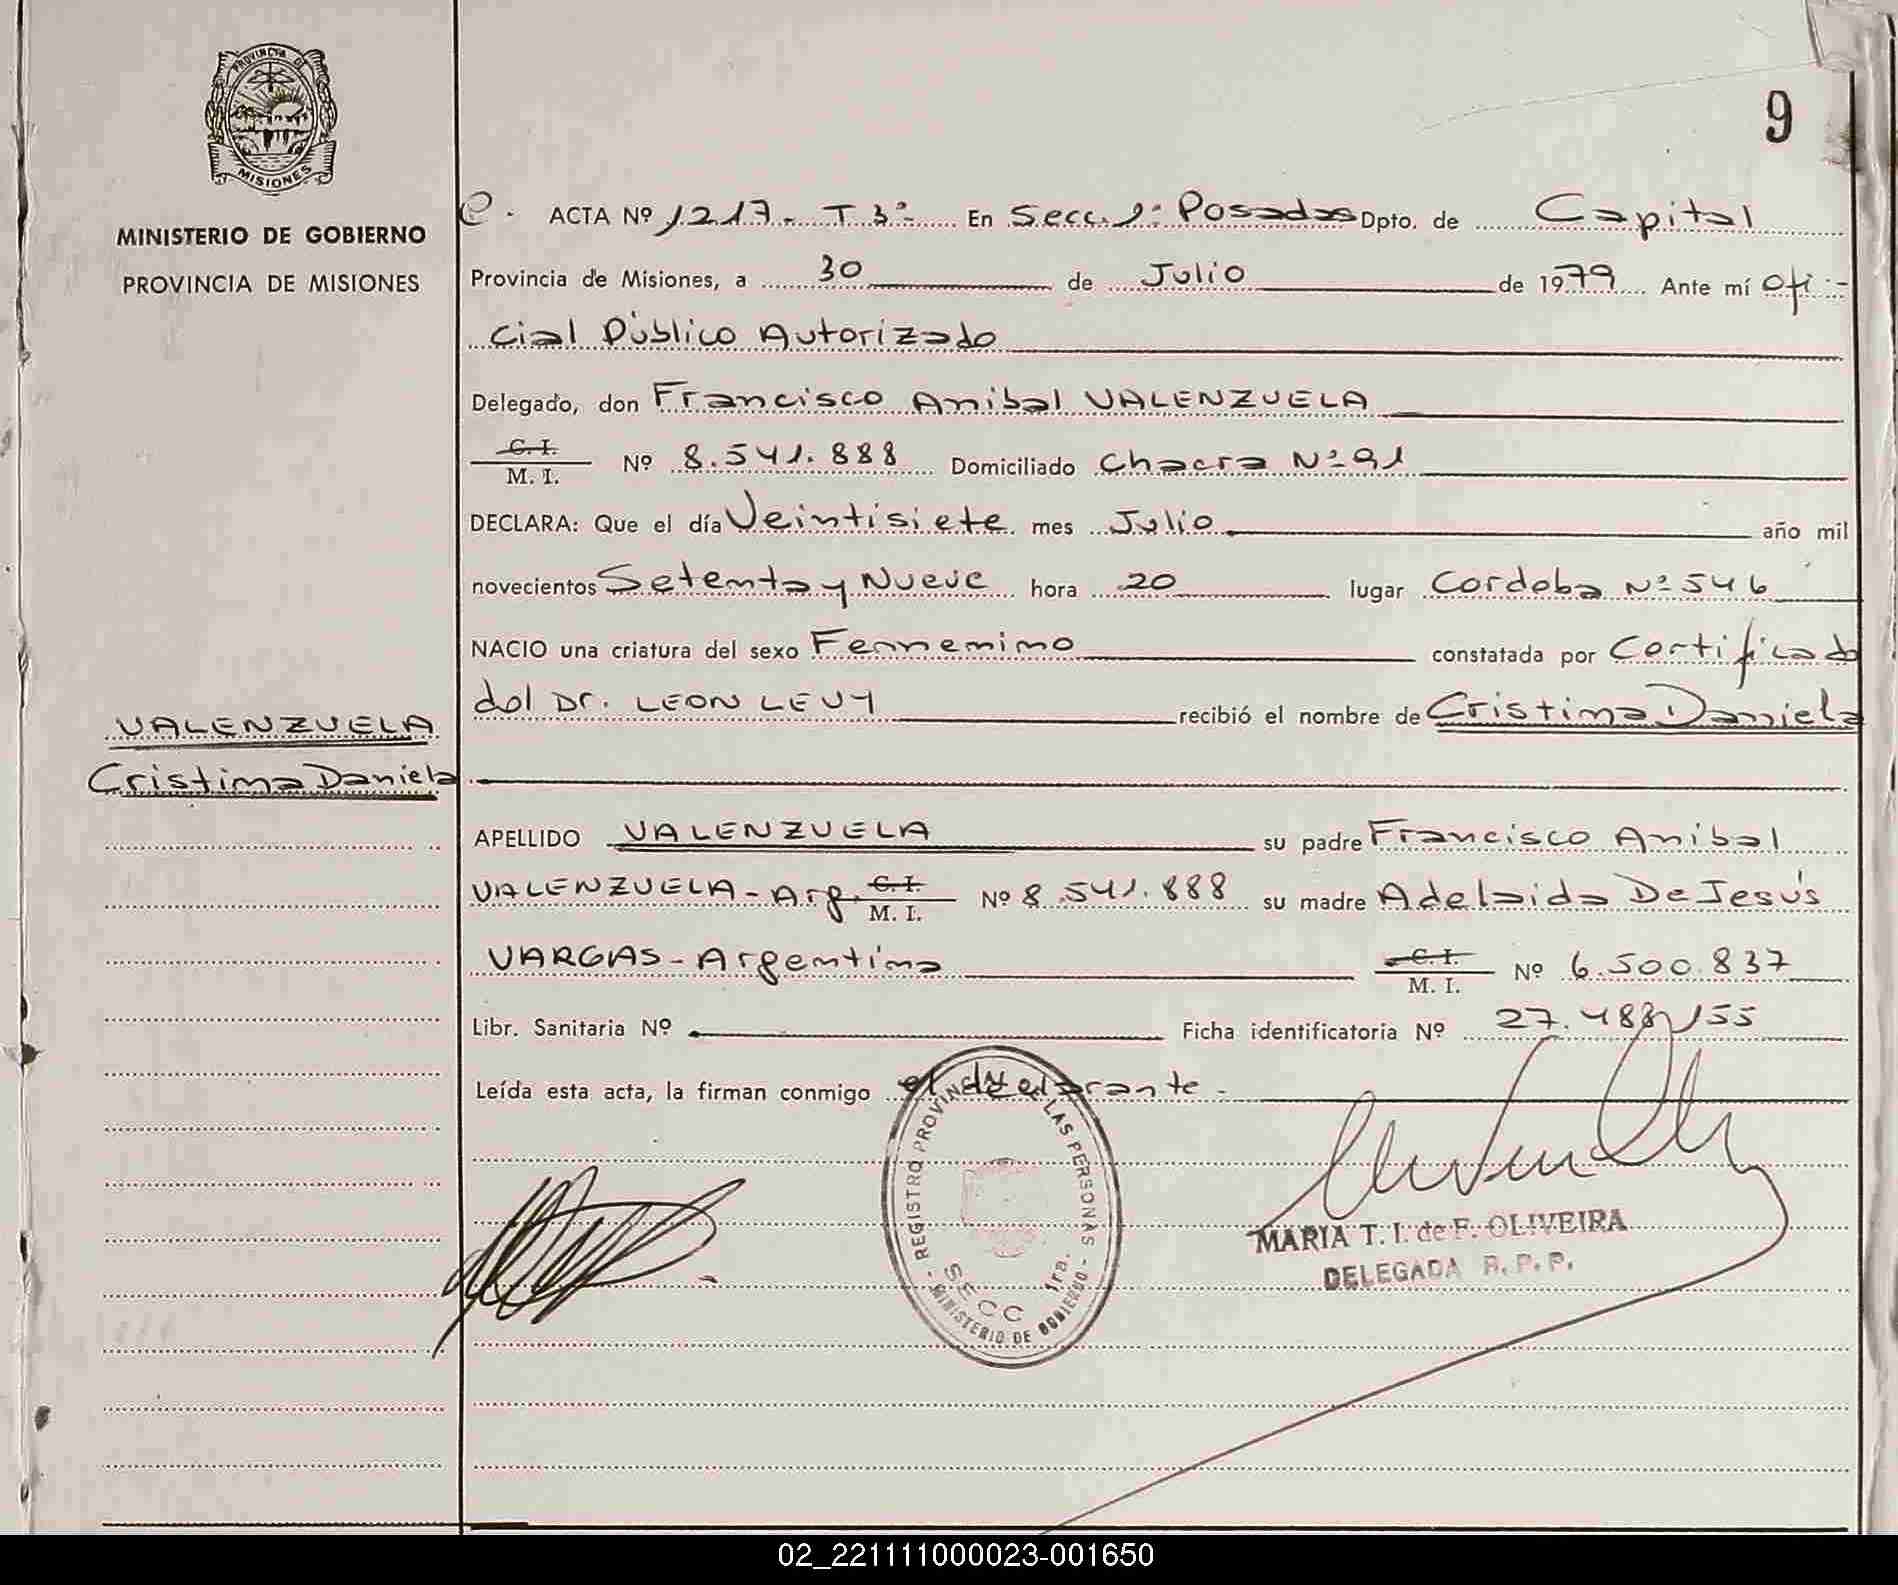 PROVINCIA DE
MISIONES
MINISTERIO DE GOBIERNO
PROVINCIA DE MISIONES
9
ACTA Nº 1217 - T 3º - En Secc. 1ª Posadas Dpto. de Capital
Provincia de Misiones, a 30 de Julio de 1979 Ante mí Ofi-
cial Público Autorizado
Delegado, don Francisco Anibal VALENZUELA
C. I.
M. I. Nº 8.541.888 Domiciliado Chacra Nº 91
DECLARA: Que el día Veintisiete mes Julio año mil
novecientos Setenta y Nueve hora 20 lugar Cordoba Nº 546
NACIO una criatura del sexo Femenino constatada por Certificado
del Dr. LEON LEVY recibió el nombre de Cristina Daniela
VALENZUELA
Cristina Daniela
APELLIDO VALENZUELA su padre Francisco Anibal
VALENZUELA - Arg. C. I. M. I. Nº 8.541.888 su madre Adelaida De Jesús
VARGAS - Argentina C. I. M. I. Nº 6.500.837
Libr. Sanitaria Nº Ficha identificatoria Nº 27.488.155
Leída esta acta, la firman conmigo el declarante -
REGISTRO PROVINCIAL DE LAS PERSONAS
SECC 1ra.
- MINISTERIO DE GOBIERNO -
MARIA T. I. de F. OLIVEIRA
DELEGADA R. P. P.
02_221111000023-001650